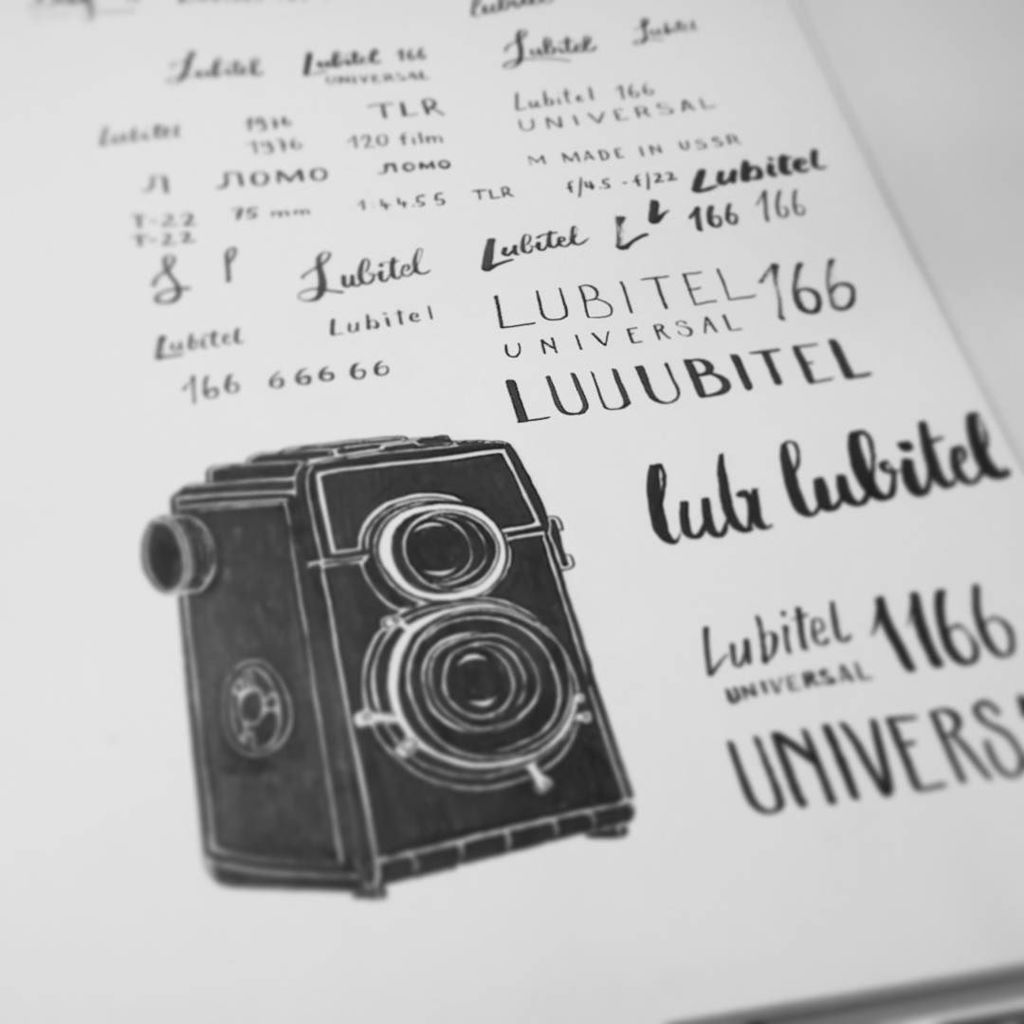 Lubitel
Lubitel Lubitel 166 Lubitel Lubitel
UNIVERSAL
Lubitel 1976 TLR Lubitel 166
1976 120 film UNIVERSAL
Л ЛОМО ЛОМО M MADE IN USSR
T-22 75 mm 1:4.4.55 TLR f/4.5 - f/22 Lubitel
T-22
L l Lubitel Lubitel L L 166 166
Lubitel Lubitel LUBITEL 166
UNIVERSAL
166 6 6 6 6 6 LUUUBITEL
lub lubitel
Lubitel 1166
UNIVERSAL
UNIVERS